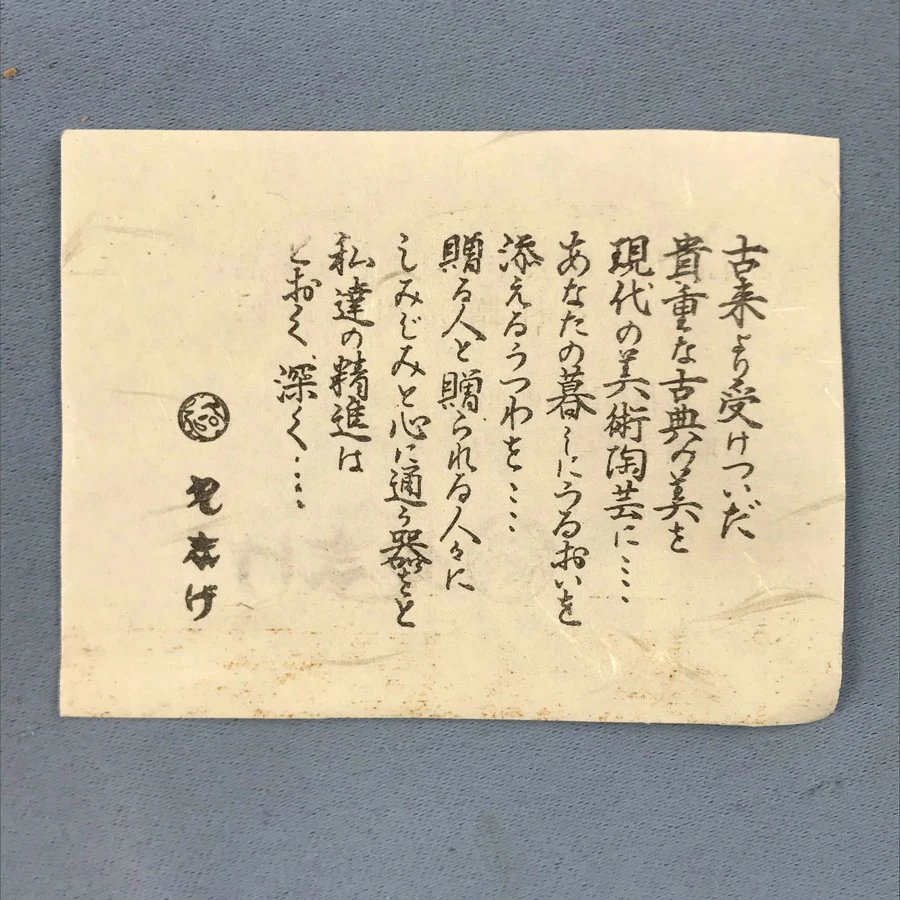 古来より受けついだ
貴重な古典の美を
現代の美術陶芸に……
あなたの暮しにうるおいを
添えるうつわを……
贈る人と贈られる人々に
しみじみと心に通う器をと
私達の精進は
とおく、深く……